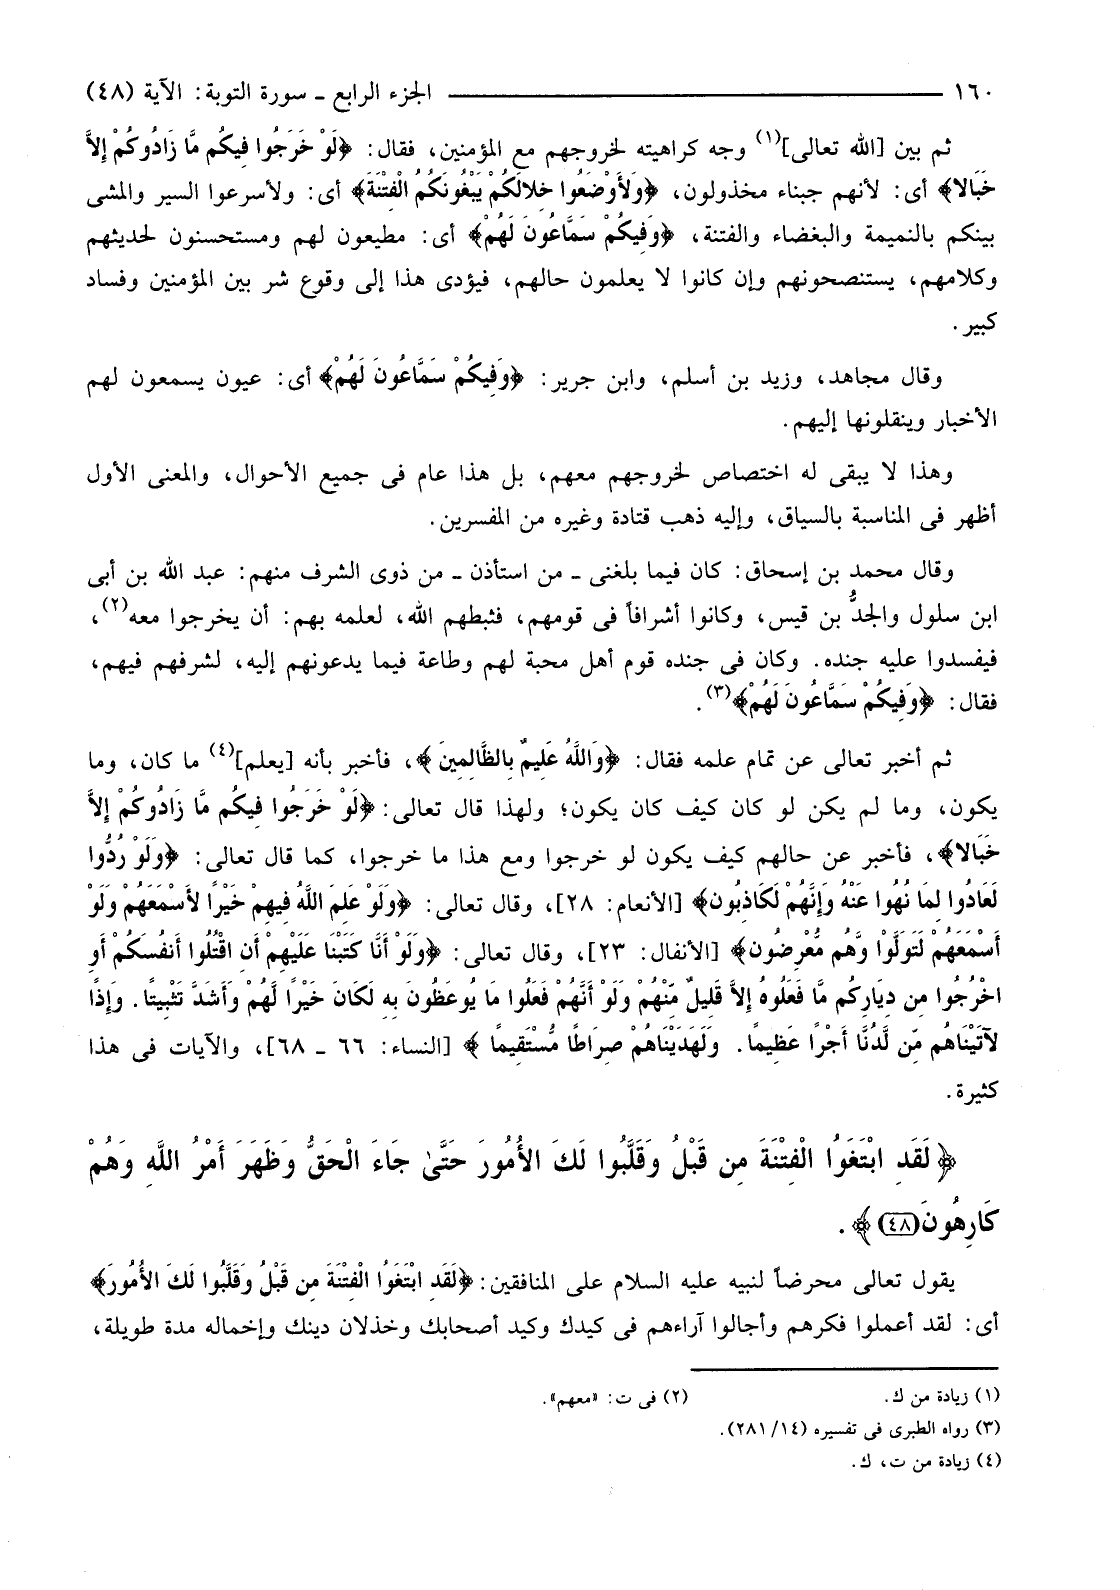 ١٦٠ ـــــــــــــــــــــــــــــــــــــــــــــ الجزء الرابع ـ سورة التوبة: الآية (٤٨)
ثم بين [الله تعالى](١) وجه كراهيته لخروجهم مع المؤمنين، فقال: ﴿لَوْ خَرَجُوا فِيكُم مَّا زَادُوكُمْ إِلاَّ
خَبَالا﴾ أى: لأنهم جبناء مخذولون، ﴿وَلأَوْضَعُوا خِلالَكُمْ يَبْغُونَكُمُ الْفِتْنَةَ﴾ أى: ولأسرعوا السير والمشى
بينكم بالنميمة والبغضاء والفتنة، ﴿وَفِيكُمْ سَمَّاعُونَ لَهُمْ﴾ أى: مطيعون لهم ومستحسنون لحديثهم
وكلامهم، يستنصحونهم وإن كانوا لا يعلمون حالهم، فيؤدى هذا إلى وقوع شر بين المؤمنين وفساد
كبير.
وقال مجاهد، وزيد بن أسلم، وابن جرير: ﴿وَفِيكُمْ سَمَّاعُونَ لَهُمْ﴾ أى: عيون يسمعون لهم
الأخبار وينقلونها إليهم.
وهذا لا يبقى له اختصاص لخروجهم معهم، بل هذا عام فى جميع الأحوال، والمعنى الأول
أظهر فى المناسبة بالسياق، وإليه ذهب قتادة وغيره من المفسرين.
وقال محمد بن إسحاق: كان فيما بلغنى ـ من استأذن ـ من ذوى الشرف منهم: عبد الله بن أبى
ابن سلول والجدُّ بن قيس، وكانوا أشرافاً فى قومهم، فثبطهم الله، لعلمه بهم: أن يخرجوا معه(٢)،
فيفسدوا عليه جنده. وكان فى جنده قوم أهل محبة لهم وطاعة فيما يدعونهم إليه، لشرفهم فيهم،
فقال: ﴿وَفِيكُمْ سَمَّاعُونَ لَهُمْ﴾(٣).
ثم أخبر تعالى عن تمام علمه فقال: ﴿وَاللَّهُ عَلِيمٌ بِالظَّالِمِينَ﴾، فأخبر بأنه [يعلم](٤) ما كان، وما
يكون، وما لم يكن لو كان كيف كان يكون؛ ولهذا قال تعالى: ﴿لَوْ خَرَجُوا فِيكُم مَّا زَادُوكُمْ إِلاَّ
خَبَالا﴾، فأخبر عن حالهم كيف يكون لو خرجوا ومع هذا ما خرجوا، كما قال تعالى: ﴿وَلَوْ رُدُّوا
لَعَادُوا لِمَا نُهُوا عَنْهُ وَإِنَّهُمْ لَكَاذِبُون﴾ [الأنعام: ٢٨]، وقال تعالى: ﴿وَلَوْ عَلِمَ اللَّهُ فِيهِمْ خَيْرًا لأَسْمَعَهُمْ وَلَوْ
أَسْمَعَهُمْ لَتَوَلَّوْا وَّهُم مُّعْرِضُون﴾ [الأنفال: ٢٣]، وقال تعالى: ﴿وَلَوْ أَنَّا كَتَبْنَا عَلَيْهِمْ أَنِ اقْتُلُوا أَنفُسَكُمْ أَوِ
اخْرُجُوا مِن دِيَارِكُم مَّا فَعَلُوهُ إِلاَّ قَلِيلٌ مِّنْهُمْ وَلَوْ أَنَّهُمْ فَعَلُوا مَا يُوعَظُونَ بِهِ لَكَانَ خَيْرًا لَّهُمْ وَأَشَدَّ تَثْبِيتًا. وَإِذًا
لآتَيْنَاهُم مِّن لَّدُنَّا أَجْرًا عَظِيماً. وَلَهَدَيْنَاهُمْ صِرَاطًا مُّسْتَقِيماً﴾ [النساء: ٦٦ ـ ٦٨]، والآيات فى هذا
كثيرة.
﴿لَقَدِ ابْتَغَوُا الْفِتْنَةَ مِن قَبْلُ وَقَلَّبُوا لَكَ الأُمُورَ حَتَّىٰ جَاءَ الْحَقُّ وَظَهَرَ أَمْرُ اللَّهِ وَهُمْ
كَارِهُونَ (٤٨)﴾.
يقول تعالى محرضاً لنبيه عليه السلام على المنافقين: ﴿لَقَدِ ابْتَغَوُا الْفِتْنَةَ مِن قَبْلُ وَقَلَّبُوا لَكَ الأُمُورَ﴾
أى: لقد أعملوا فكرهم وأجالوا آراءهم فى كيدك وكيد أصحابك وخذلان دينك وإخماله مدة طويلة،
(١) زيادة من ك. (٢) فى ت: «معهم».
(٣) رواه الطبرى فى تفسيره (١٤/ ٢٨١).
(٤) زيادة من ت، ك.